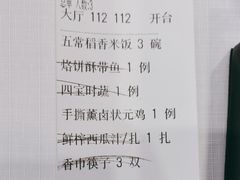 大厅 112 112 开台
五常稻香米饭 3 碗
焙饼酥带鱼 1 例
四宝时蔬 1 例
手撕薰卤状元鸡 1 例
鲜榨西瓜汁/扎 1 扎
香巾筷子 3 双